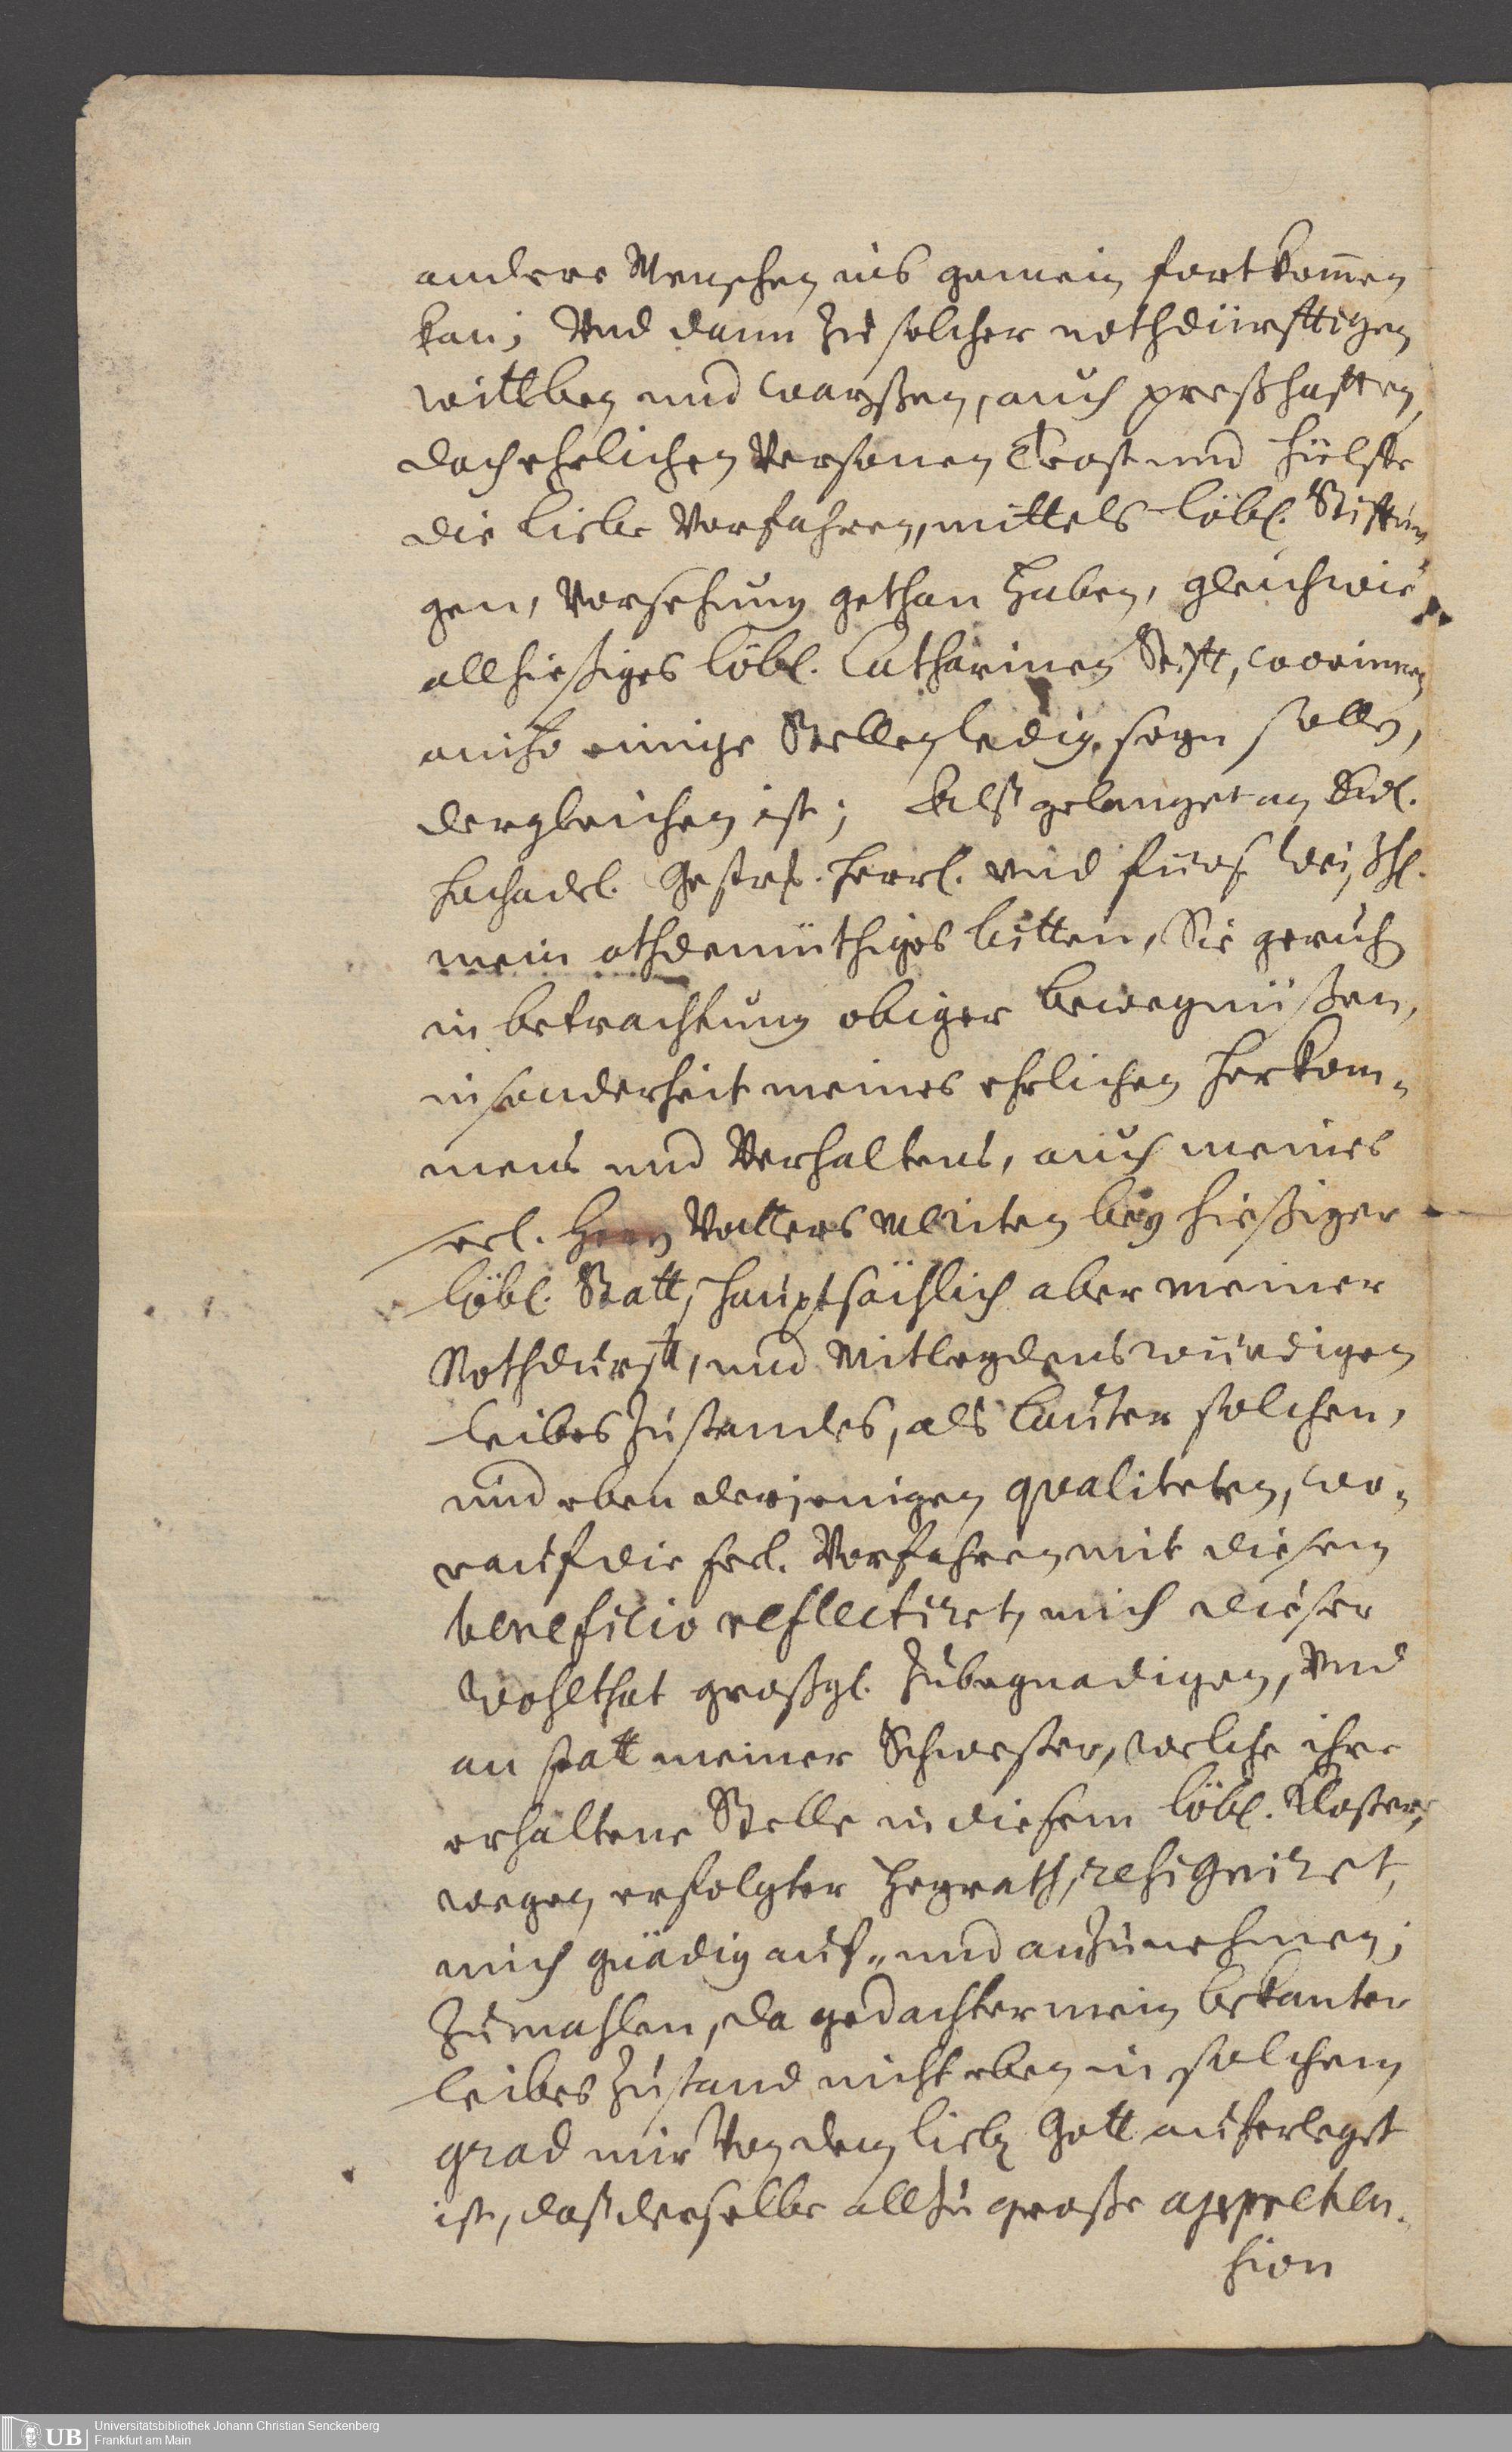 andere Menschen ins gemein fortkom̅en
kan; Und dann zu solcher nothdürfftigen
wittben und waysßen, auch presßhafften
doch ehrlichen Personen Trost und hülffe
die liebe Vorfahren, mittels löbl. Stifftun
gen, Vorsehung gethan haben, gleichwie
allhießiges löbl. Catharinen Stifft, worinnen
anitzo einige Stellen ledig seyn sollen,
dergleichen ist; Alß gelanget an
hochadel. Gestr. herrl. und fürs.
mein demüthiges bitten, Sie geruhen
in betrachtung obiger bewegnüßen,
insonderheit meines ehrlichen herkom-
mens und Verhaltens, auch meines
seel. Herrn Vatters Meriten bey hießiger
löbl. Statt, hauptsächlich aber meiner
Nothdurfft, und Mitleydenswürdigen
leibes Zustandes, als lauter solchen,
und eben derjenigen qvaliteten, wo-
rauf die seel. Vorfahren mit diesem
beneficio reflectiret, mich dieser
Wohlthat großgl. zubegnadigen, Und
an statt meiner Schwester, welche ihre
erhaltene Stelle in diesem löbl. Kloster,
wegen erfolgter heyrath, resigniret,
mich gnädig auf- und anzunehmen;
Zumahlen, da gedachter mein bekanter
leibes Zustand nicht eben in solchem
grad mir von dem lieben Gott auferleget
ist, daß derselbe allzu große apprehen-
sion
Universitätsbibliothek Johann Christian Senckenberg
Frankfurt am Main
UB